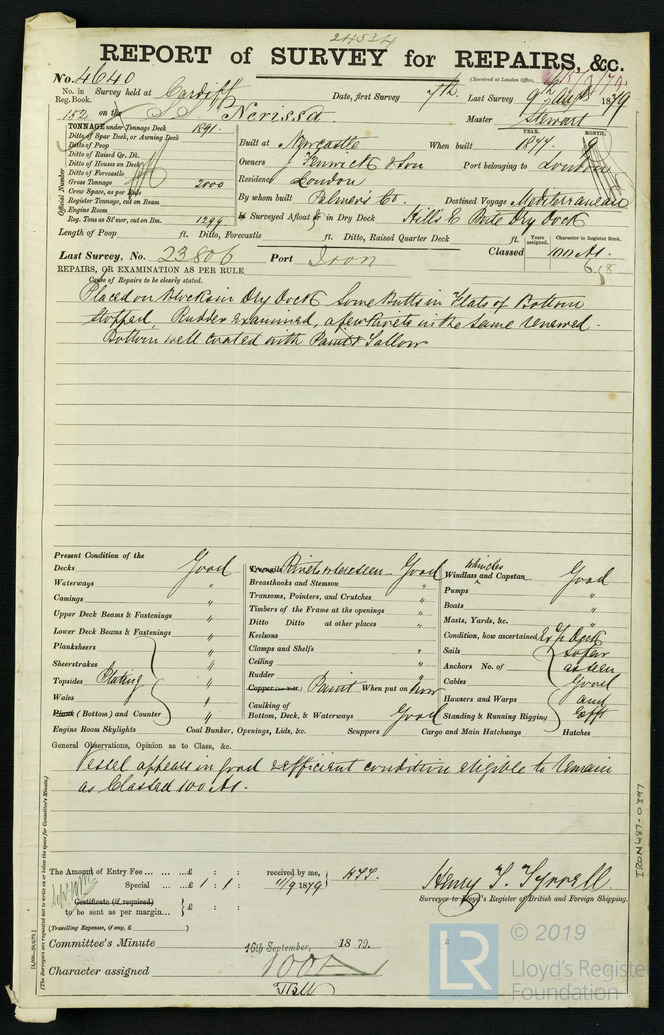 24534
REPORT of SURVEY for REPAIRS, &c.
No. 4640
(Received at London Office,
No. in Reg. Book. Survey held at Cardiff Date, first Survey 7th Last Survey 9th 1879
152 on the SS Nerissa Master Stewart
TONNAGE under Tonnage Deck 1891
Ditto of Spar Deck, or Awning Deck
Ditto of Poop
Ditto of Raised Qr. Dk.
Ditto of Houses on Deck
Ditto of Forecastle
Gross Tonnage 2000
Crew Space, as per Rule
Register Tonnage, cut on Beam
Engine Room
Reg. Tons as St'mer, cut on Bm. 1299
Official Number
YEAR. MONTH.
Built at Newcastle When built 1877 9
Owners J Fenwick & Son Port belonging to London
Residence London
By whom built Palmer's Co. Destined Voyage Mediterranean
If Surveyed Afloat or in Dry Dock Hill's E Bute Dry Dock
Length of Poop ft. Ditto, Forecastle ft. Ditto, Raised Quarter Deck ft.
Years assigned. Character in Register Book.
Last Survey, No. 23806 Port Iron Classed 100 A1.
6,78
REPAIRS, OR EXAMINATION AS PER RULE
Cause of Repairs to be clearly stated.
Placed on Blocks in Dry Dock Some Butts in Flats of Bottom
Stopped, Rudder Examined, a few Rivets in the same renewed.
Bottom well coated with Paint & Tallow
Present Condition of the
Decks Good
Waterways "
Comings "
Upper Deck Beams & Fastenings "
Lower Deck Beams & Fastenings "
Planksheers "
Sheerstrakes "
Topsides Plating "
Wales "
Plank (Bottom) and Counter "
Engine Room Skylights Coal Bunker, Openings, Lids, &c. Scuppers Cargo and Main Hatchways Hatches
Treenails Rivets where seen Good
Breasthooks and Stemson "
Transoms, Pointers, and Crutches "
Timbers of the Frame at the openings "
Ditto Ditto at other places "
Keelsons "
Clamps and Shelfs "
Ceiling "
Rudder "
Copper (or Y.M.) Paint When put on Now
Caulking of
Bottom, Deck, & Waterways Good
Winches
Windlass and Capstan Good
Pumps "
Boats "
Masts, Yards, &c. "
Condition, how ascertained Deck
Sails so far
Anchors No. of as seen
Cables Good
Hawsers and Warps and
Standing & Running Rigging Efft
General Observations, Opinion as to Class, &c.
Vessel appears in good & efficient condition eligible to remain
as Classed 100 A1.
The Amount of Entry Fee ... ... ...£ : : received by me,
Special ... ...£ 1 : 1 : 11/9 1879 HTT.
Certificate (if required)
to be sent as per margin... £ : :
(Travelling Expenses, if any, £ )
Henry T. Tyrrell
Surveyor to Lloyd's Register of British and Foreign Shipping.
Committee's Minute 16th September, 1879.
Character assigned 100 A
(The Surveyors are requested not to write on or below the space for Committee's Minute.)
IRON 487-0397
© 2019
LR Lloyd's Register
Foundation